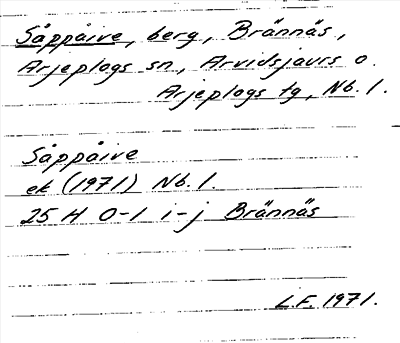 Såppåive, berg, Brännäs,
Arjeplogs sn., Arvidsjaurs o.
Arjeplogs tg, Nb. l.
Såppåive
ek (1971) Nb. l.
25 H 0-1 i-j Brännäs
L.F. 1971.